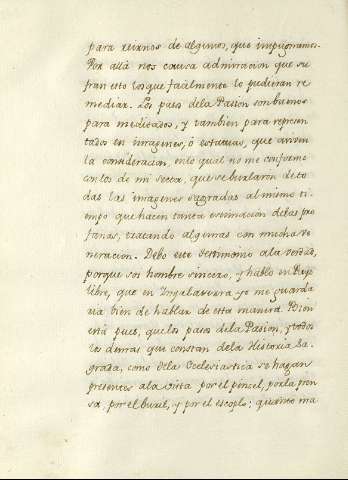 para reirnos de algunos, que impugnamos.
Por allà nos causa admiracion que su
fran esto los que facilmente lo pudieran re
mediar. Los pasos dela Pasion son buenos
para meditados, y tambien para represen
tados en imagenes, ò estatuas, que aviven
la consideracion, enlo qual no me conformo
con los de mi secta, que se burlaron de to
das las imagenes sagradas al mismo ti
empo que hacen tanta estimacion delas pro
fanas, tratando algunas con mucha ve
neracion. Debo este testimonio ala verdad,
porque soi hombre sincero, y hablo en Pays
libre, que en Inglaterra yo me guarda
ria bien de hablar de esta manera. Bien
està pues, que los pasos dela Pasion, y todos
los demas que constan dela Historia Sa
grada, como dela Ecclesiastica se hagan
presentes ala vista por el pincel, por la pren
sa, por el buril, y por el escoplo; quanto ma